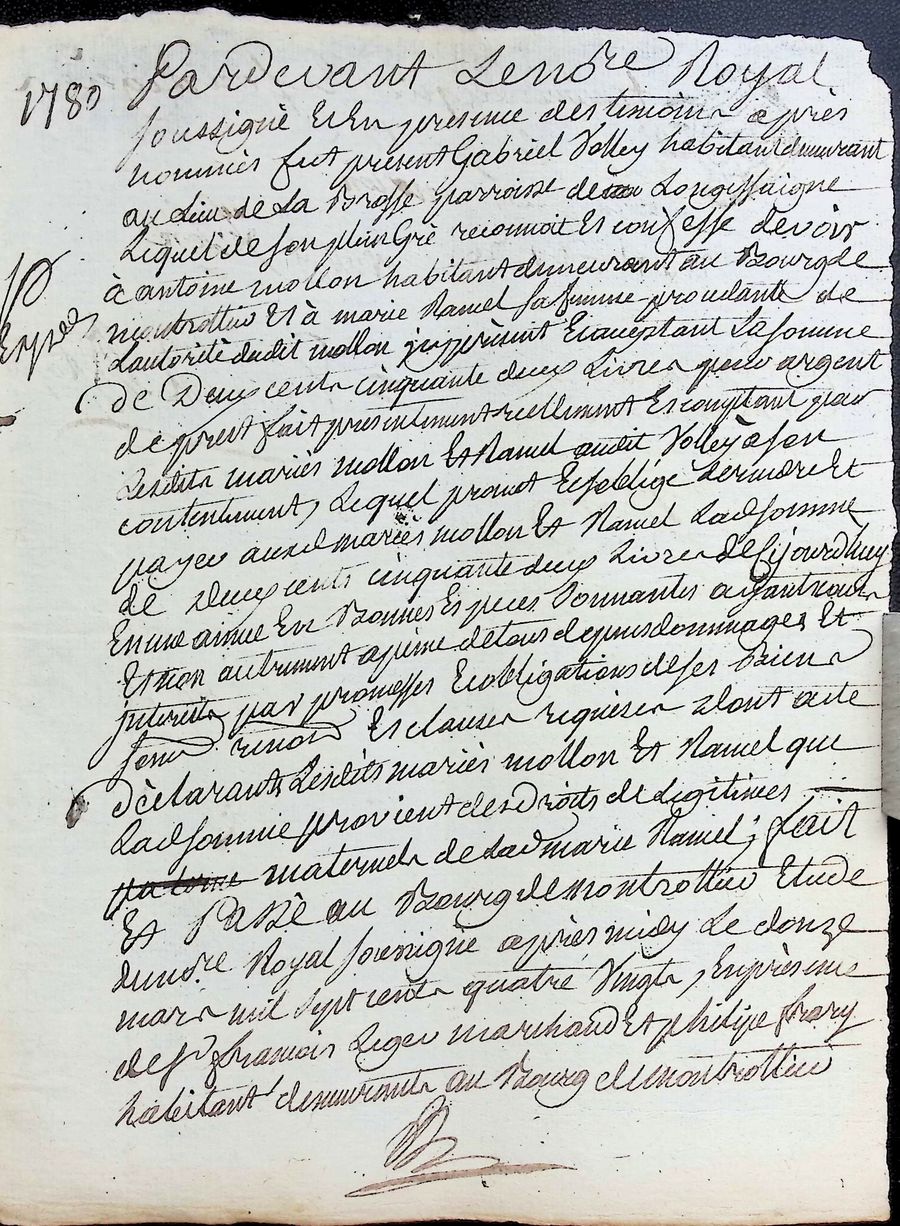 1780
Pardevant Le nore Royal
soussigné Et En presence des temoins après
nommés fut présent Gabriel Volley habitant demeurant
au Lieu de La Brosse parroisse de Longessaigne
Lequel de son plein Gré reconnoit Et confesse devoir
à antoine mollon habitant demeurant au Bourg de
montrottier Et à marie Ramel sa femme procedante de
Lautorité dudit mollon jcy présent Et acceptant La somme
de Deux cents cinquante deux Livres pour argent
de prest fait présentement réellement Et comptant par
Lesdits mariés mollon Et Ramel audit Volley à son
contentement, Lequel promet Et soblige De rendre Et
payer auxd mariés mollon Et Ramel Lad somme
de Deux cents cinquante deux Livres de cijourdhuy
En une année En Bonnes Especes sonnantes ayant cours
Et non autrement a peine de tous depens dommages Et
jnterets par promesses Et obligations de ses Biens
soum renon Et clauses requises Dont acte
déclarants Lesdits mariés mollon Et Ramel que
Lad somme provient des Droits de Legitimes
maternels de Lad marie Ramel; fait
Et Passé au Bourg de montrottier Etude
dunore Royal soussigné après midy Le douze
mars mil sept cents quatre Vingts, En présence
de sr francois Leger marchand Et philipe frary
habitant demeurants au Bourg de montrottier